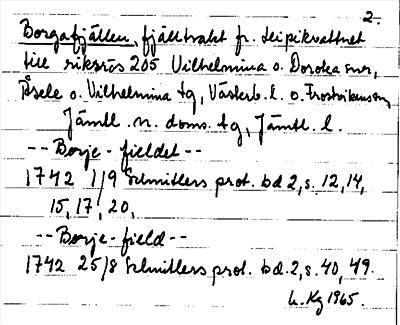 2.
Borgafjällen, fjälltrakt fr. Leipikvattnet
till riksrös 205 Vilhelmina o. Dorotea snr,
Åsele o. Vilhelmina tg, Västerb. l. o. Frostvikens sn,
Jämtl. n. doms. tg, Jämtl. l.
-- Borje-fieldet --
1742 1/9 Schnitlers prot. bd 2, s. 12, 14,
15, 17, 20,
-- Borje-field --
1742 25/8 Schnitlers prot. bd. 2, s. 40, 49.
Kg 1965.